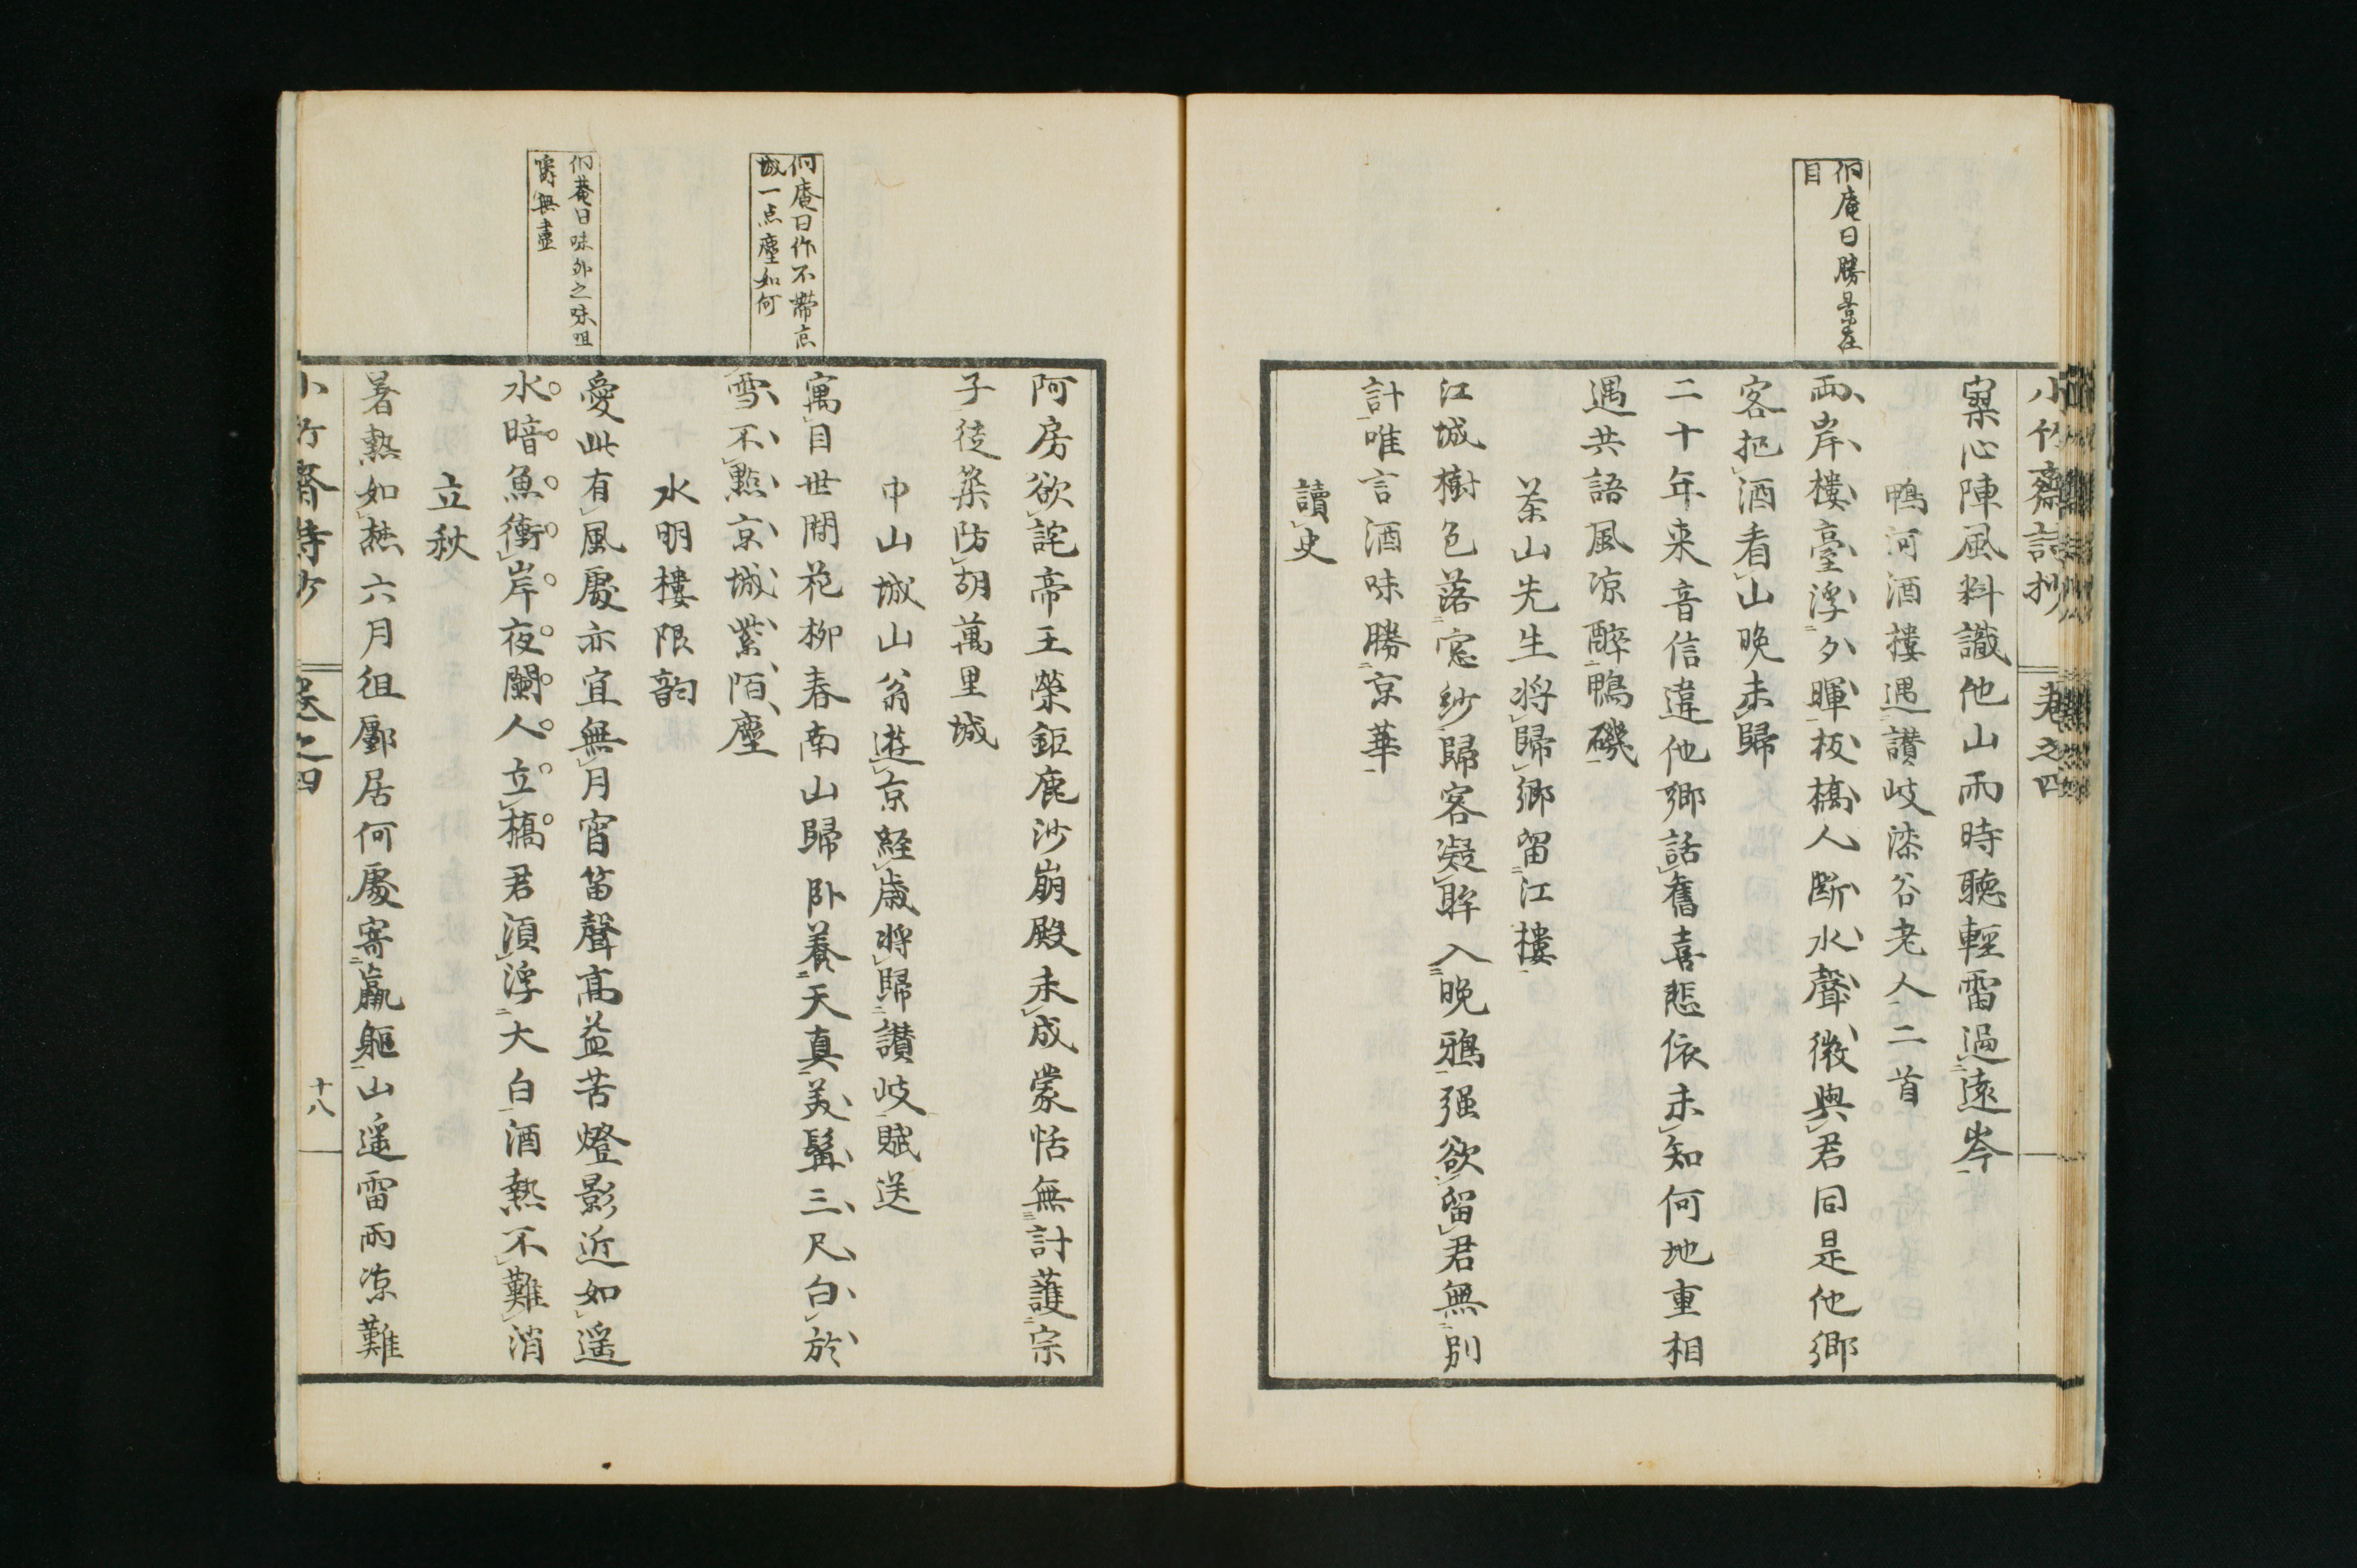 小竹齋詩抄 卷之四
侗庵曰勝景在
目
窠心陣風料識他山雨時聽輕雷過遠岑
鴨河酒樓遇讃岐漆谷老人二首
兩岸樓臺浮夕暉板橋人斷水聲微與君同是他鄉
客把酒看山晩未歸
二十年来音信違他鄉話舊喜悲依未知何地重相
遇共語風凉醉鴨磯
茶山先生将歸鄉留江樓
江城樹色落窓紗歸客凝眸入晩鴉强欲留君無別
計唯言酒味勝京華
讀史
侗庵曰作不帶京
城一点塵如何
侗菴曰味外之味咀
嚼無盡
阿房欲詫帝王榮鉅鹿沙崩殿未成蒙恬無計護宗
子徒築防胡萬里城
中山城山翁遊京経歳将歸讃岐賦送
寓目世間花柳春南山歸卧養天真美髯三尺白於
雪不點京城紫陌塵
水明樓限韵
愛此有風處亦宜無月宵笛聲高益苦燈影近如遥
水暗魚衝岸夜闌人立橋君須浮大白酒熱不難消
立秋
暑熱如㷊六月徂鄽居何處寄羸軀山遥雷雨凉難
小竹齋詩抄 卷之四 十八